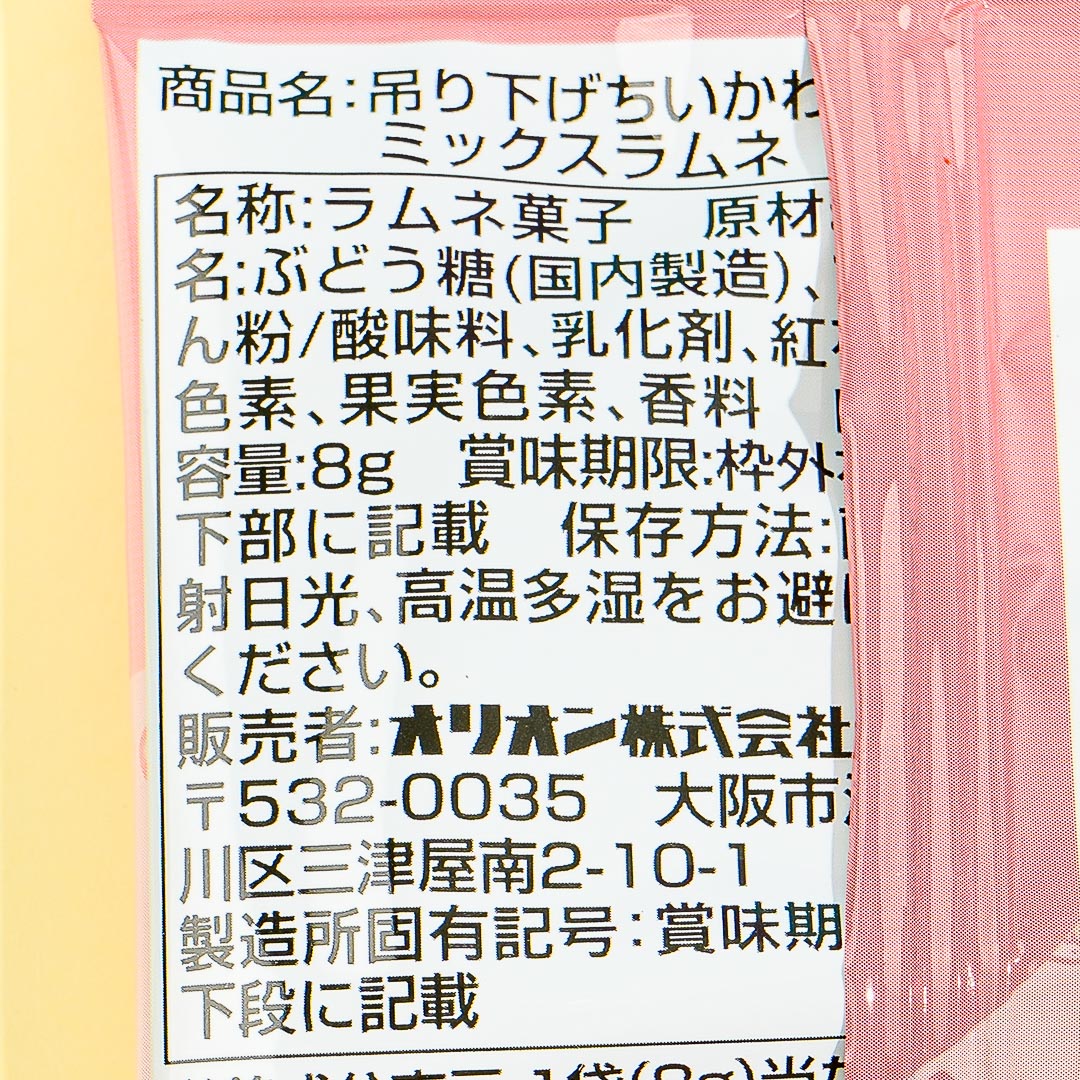 商品名:吊り下げちいかわ
ミックスラムネ
名称:ラムネ菓子 原材
名:ぶどう糖(国内製造)、
ん粉/酸味料、乳化剤、紅
色素、果実色素、香料
容量:8g 賞味期限:枠外
下部に記載 保存方法:
射日光、高温多湿をお避け
ください。
販売者:オリオン株式会社
〒532-0035 大阪市
川区三津屋南2-10-1
製造所固有記号:賞味期
下段に記載
1袋(8g)当た